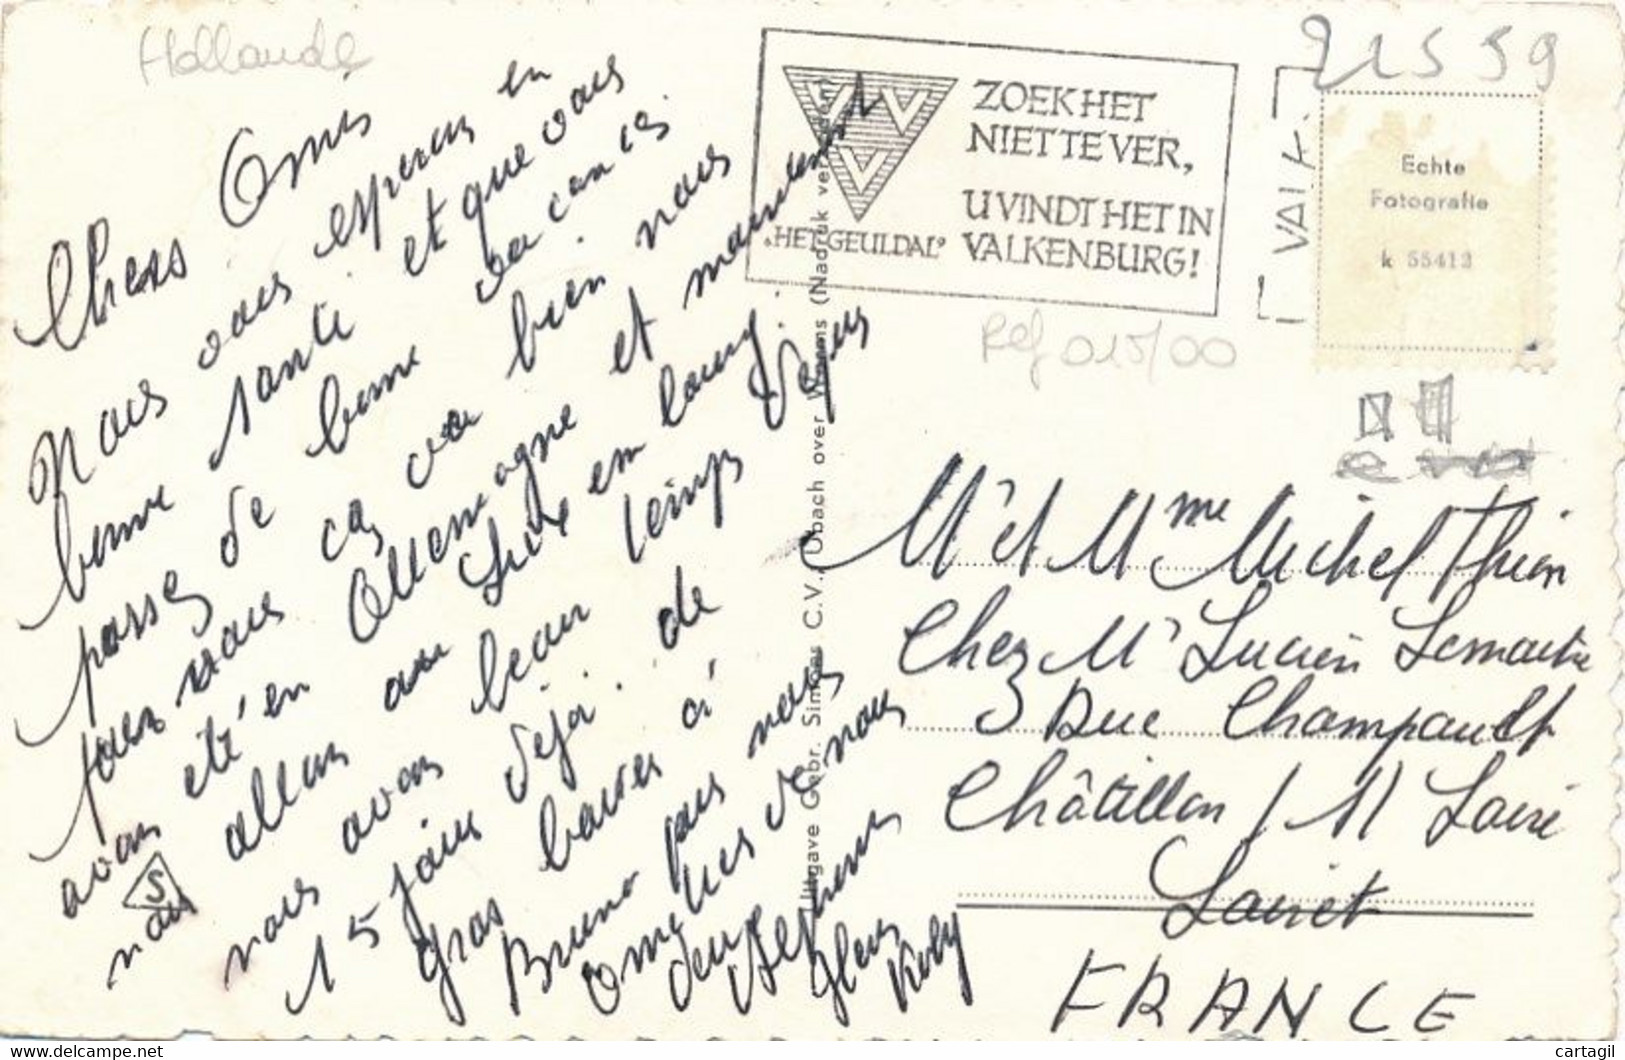 Hollande
21559
Chers Amis
Nous vous espérons en
bonne santé et que vous
passez de bonne vacances.
Pour nous ça va bien nous
avons été en Allemagne et maintenant
nous allons au
nous avons beau temps depuis
15 jours déjà. de
gros baisers à
Bruno pour nous
Amitiés de nous
deux
VVV
"HET GEULDAL"
ZOEK HET
NIET TE VER,
U VINDT HET IN
VALKENBURG!
VALK
Echte
Fotografie
k 55413
Réf 015/00
Uitgave Gebr. Simons C.V., Ubach over Worms (Nadruk verboden)
S
Mr et Mme Michel Thion
Chez Mr Lucien Lemaitre
3 Rue Champault
Châtillon / s/ Loire
Loiret
FRANCE
www.delcampe.net
cartagil